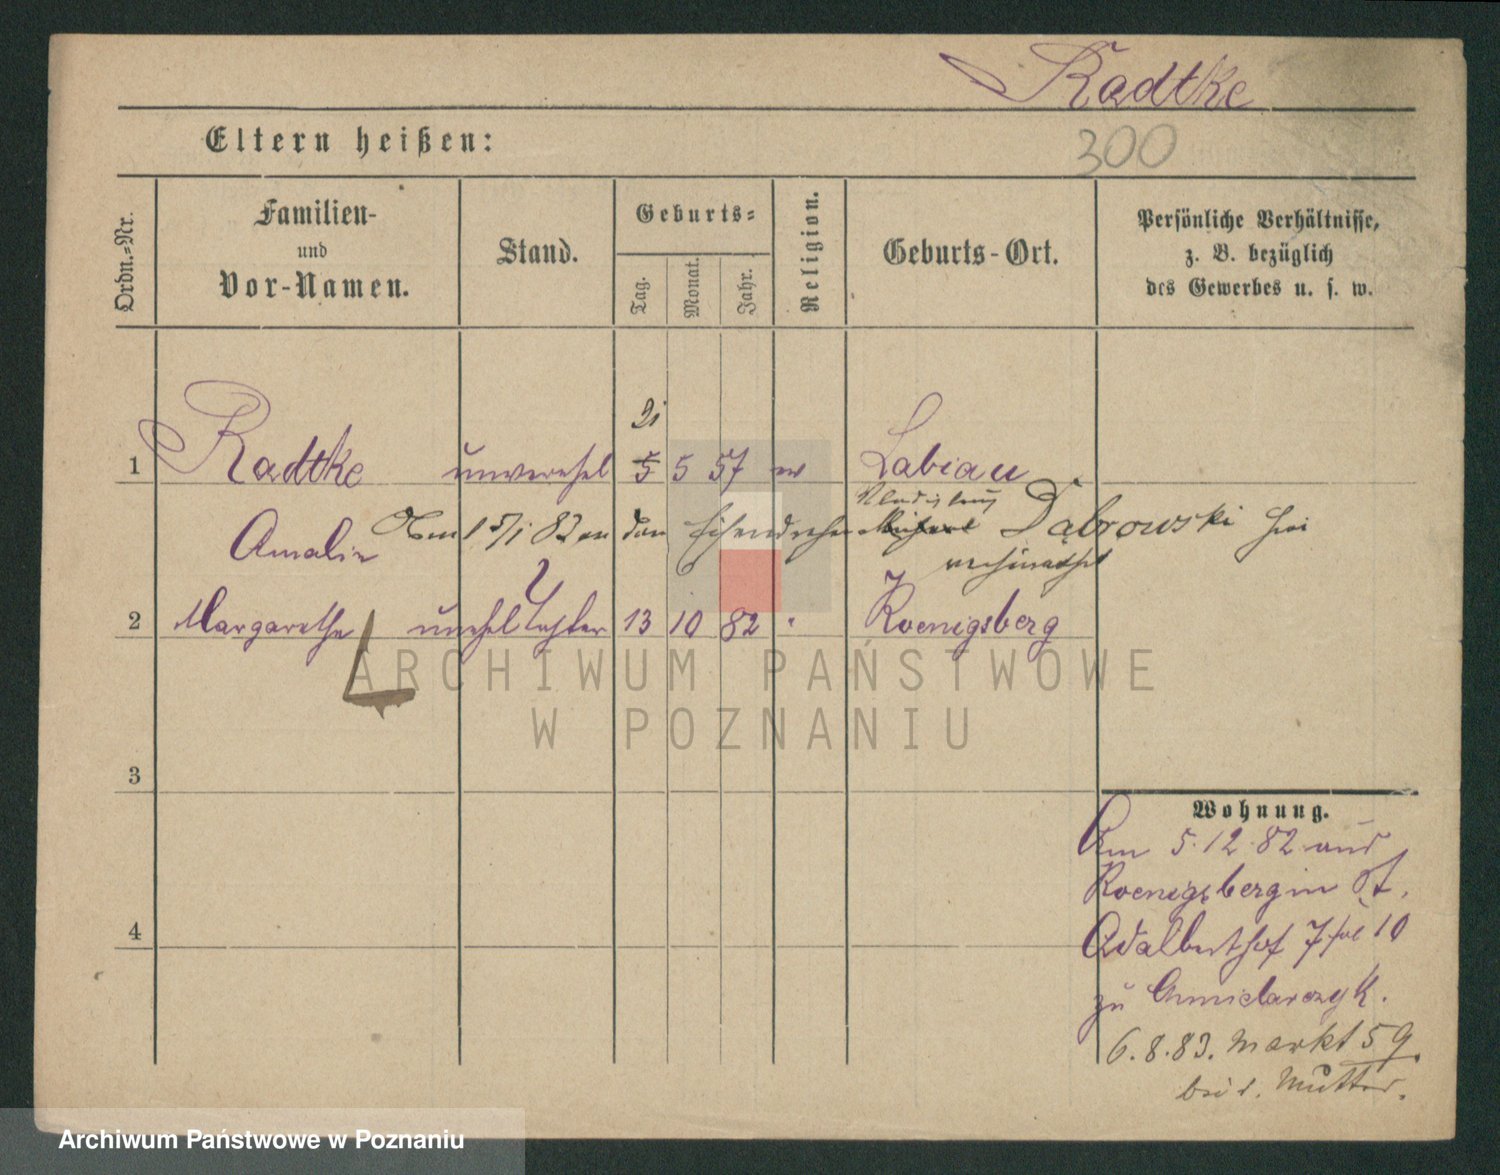 Radtke
Eltern heißen:
300
Ordn.-Nr.
Familien-
und
Vor-Namen.
Stand.
Geburts-
Tag.
Monat.
Jahr.
Religion.
Geburts-Ort.
Persönliche Verhältnisse,
z. B. bezüglich
des Gewerbes u. s. w.
21
1 Radtke unverehel 5 5 57 ev Labiau
Amalie
Am 15/1 83 an den Eisendreher Dąbrowski hier
verheirathet
2 Margarethe unehel Tochter 13 10 82 " Koenigsberg
ARCHIWUM PAŃSTWOWE
W POZNANIU
3
Wohnung.
Am 5.12.82 aus
Koenigsberg in St.
Adalberthof 7 fol 10
zu
4
6.8.83. Markt 59.
bei d. Mutter.
Archiwum Państwowe w Poznaniu